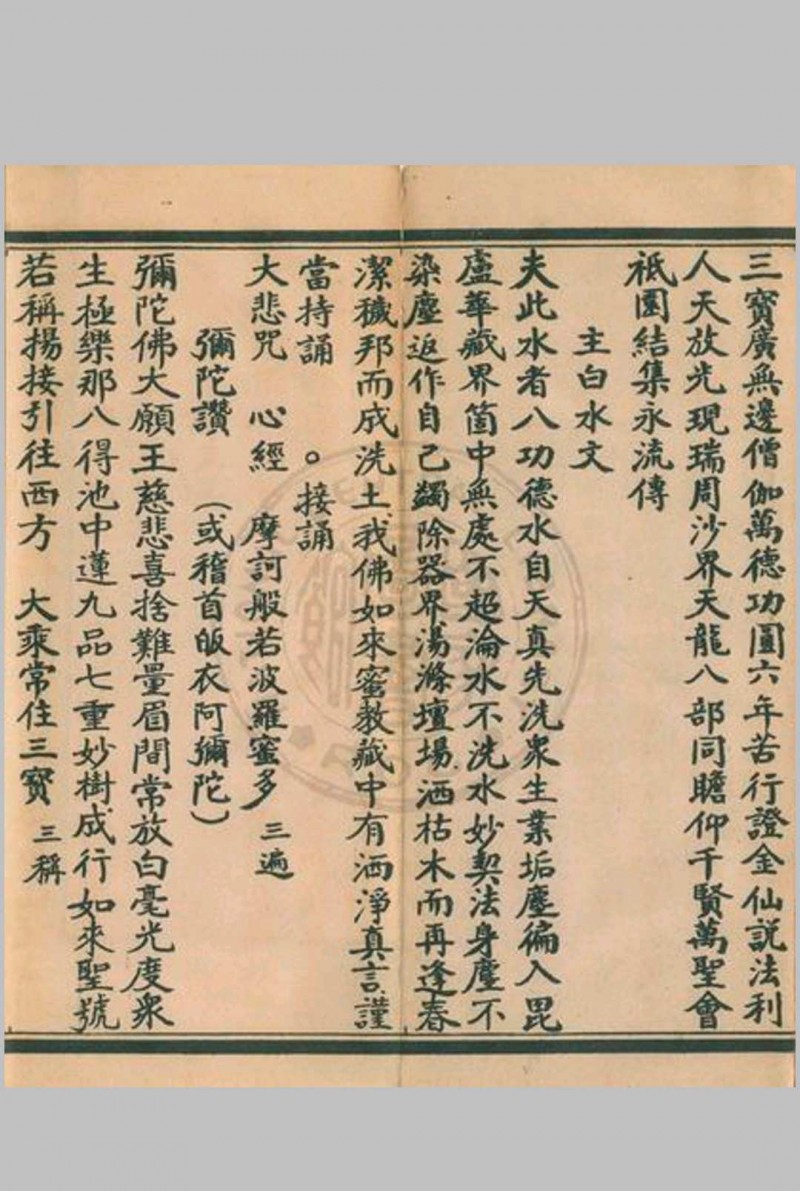 三寶廣無邊僧伽萬德功圓六年苦行證金仙說法利
人天放光現瑞周沙界天龍八部同瞻仰千賢萬聖會
祇園結集永流傳
主白水文
夫此水者八功德水自天真先洗眾生業垢塵徧入毘
盧華藏界箇中無處不超淪水不洗水妙契法身塵不
染塵返作自己蠲除器界湯滌壇場洒枯木而再逢春
潔穢邦而成洗土我佛如來蜜教藏中有洒淨真言謹
當持誦 。接誦
大悲咒 心經 摩訶般若波羅蜜多 三遍
彌陀讚 (或稽首皈衣阿彌陀)
彌陀佛大願王慈悲喜捨難量眉間常放白毫光度眾
生極樂那八得池中蓮九品七重妙樹成行如來聖號
若稱揚接引往西方 大乘常住三寶 三稱